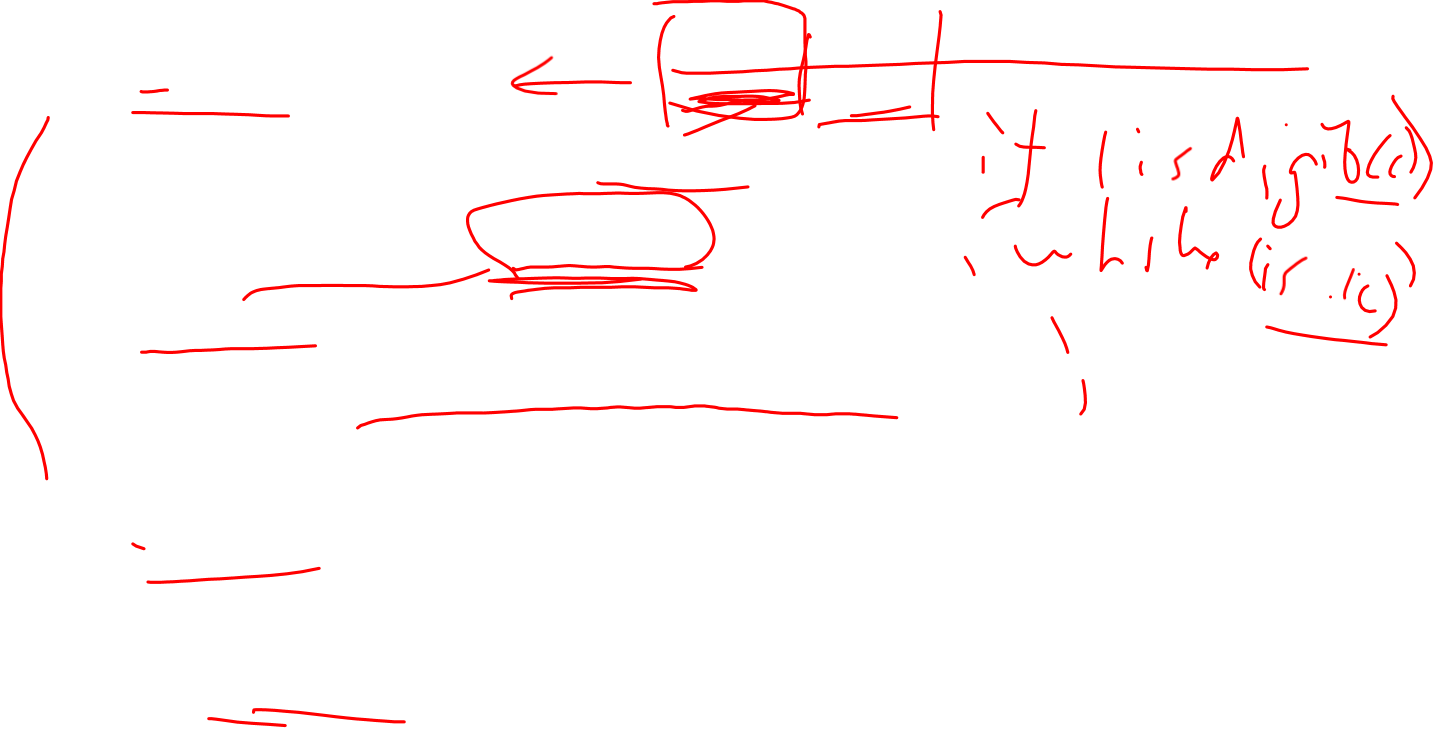 if (isdigit(c))
while (is..(c))